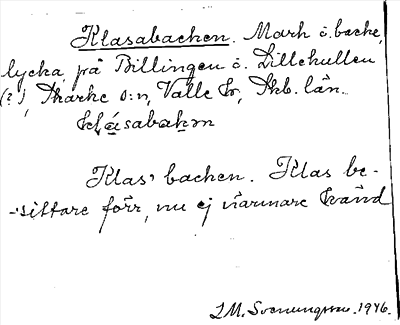 Klasabacken. Mark o. backe,
lycka, på Billingen o. Lillekullen
(?), Skarke s:n, Valle hd, Skb. län.
klásabakən
Klas' backen. Klas be-
-sittare förr, nu ej närmare känd
S.M. Svenungsson. 1946.